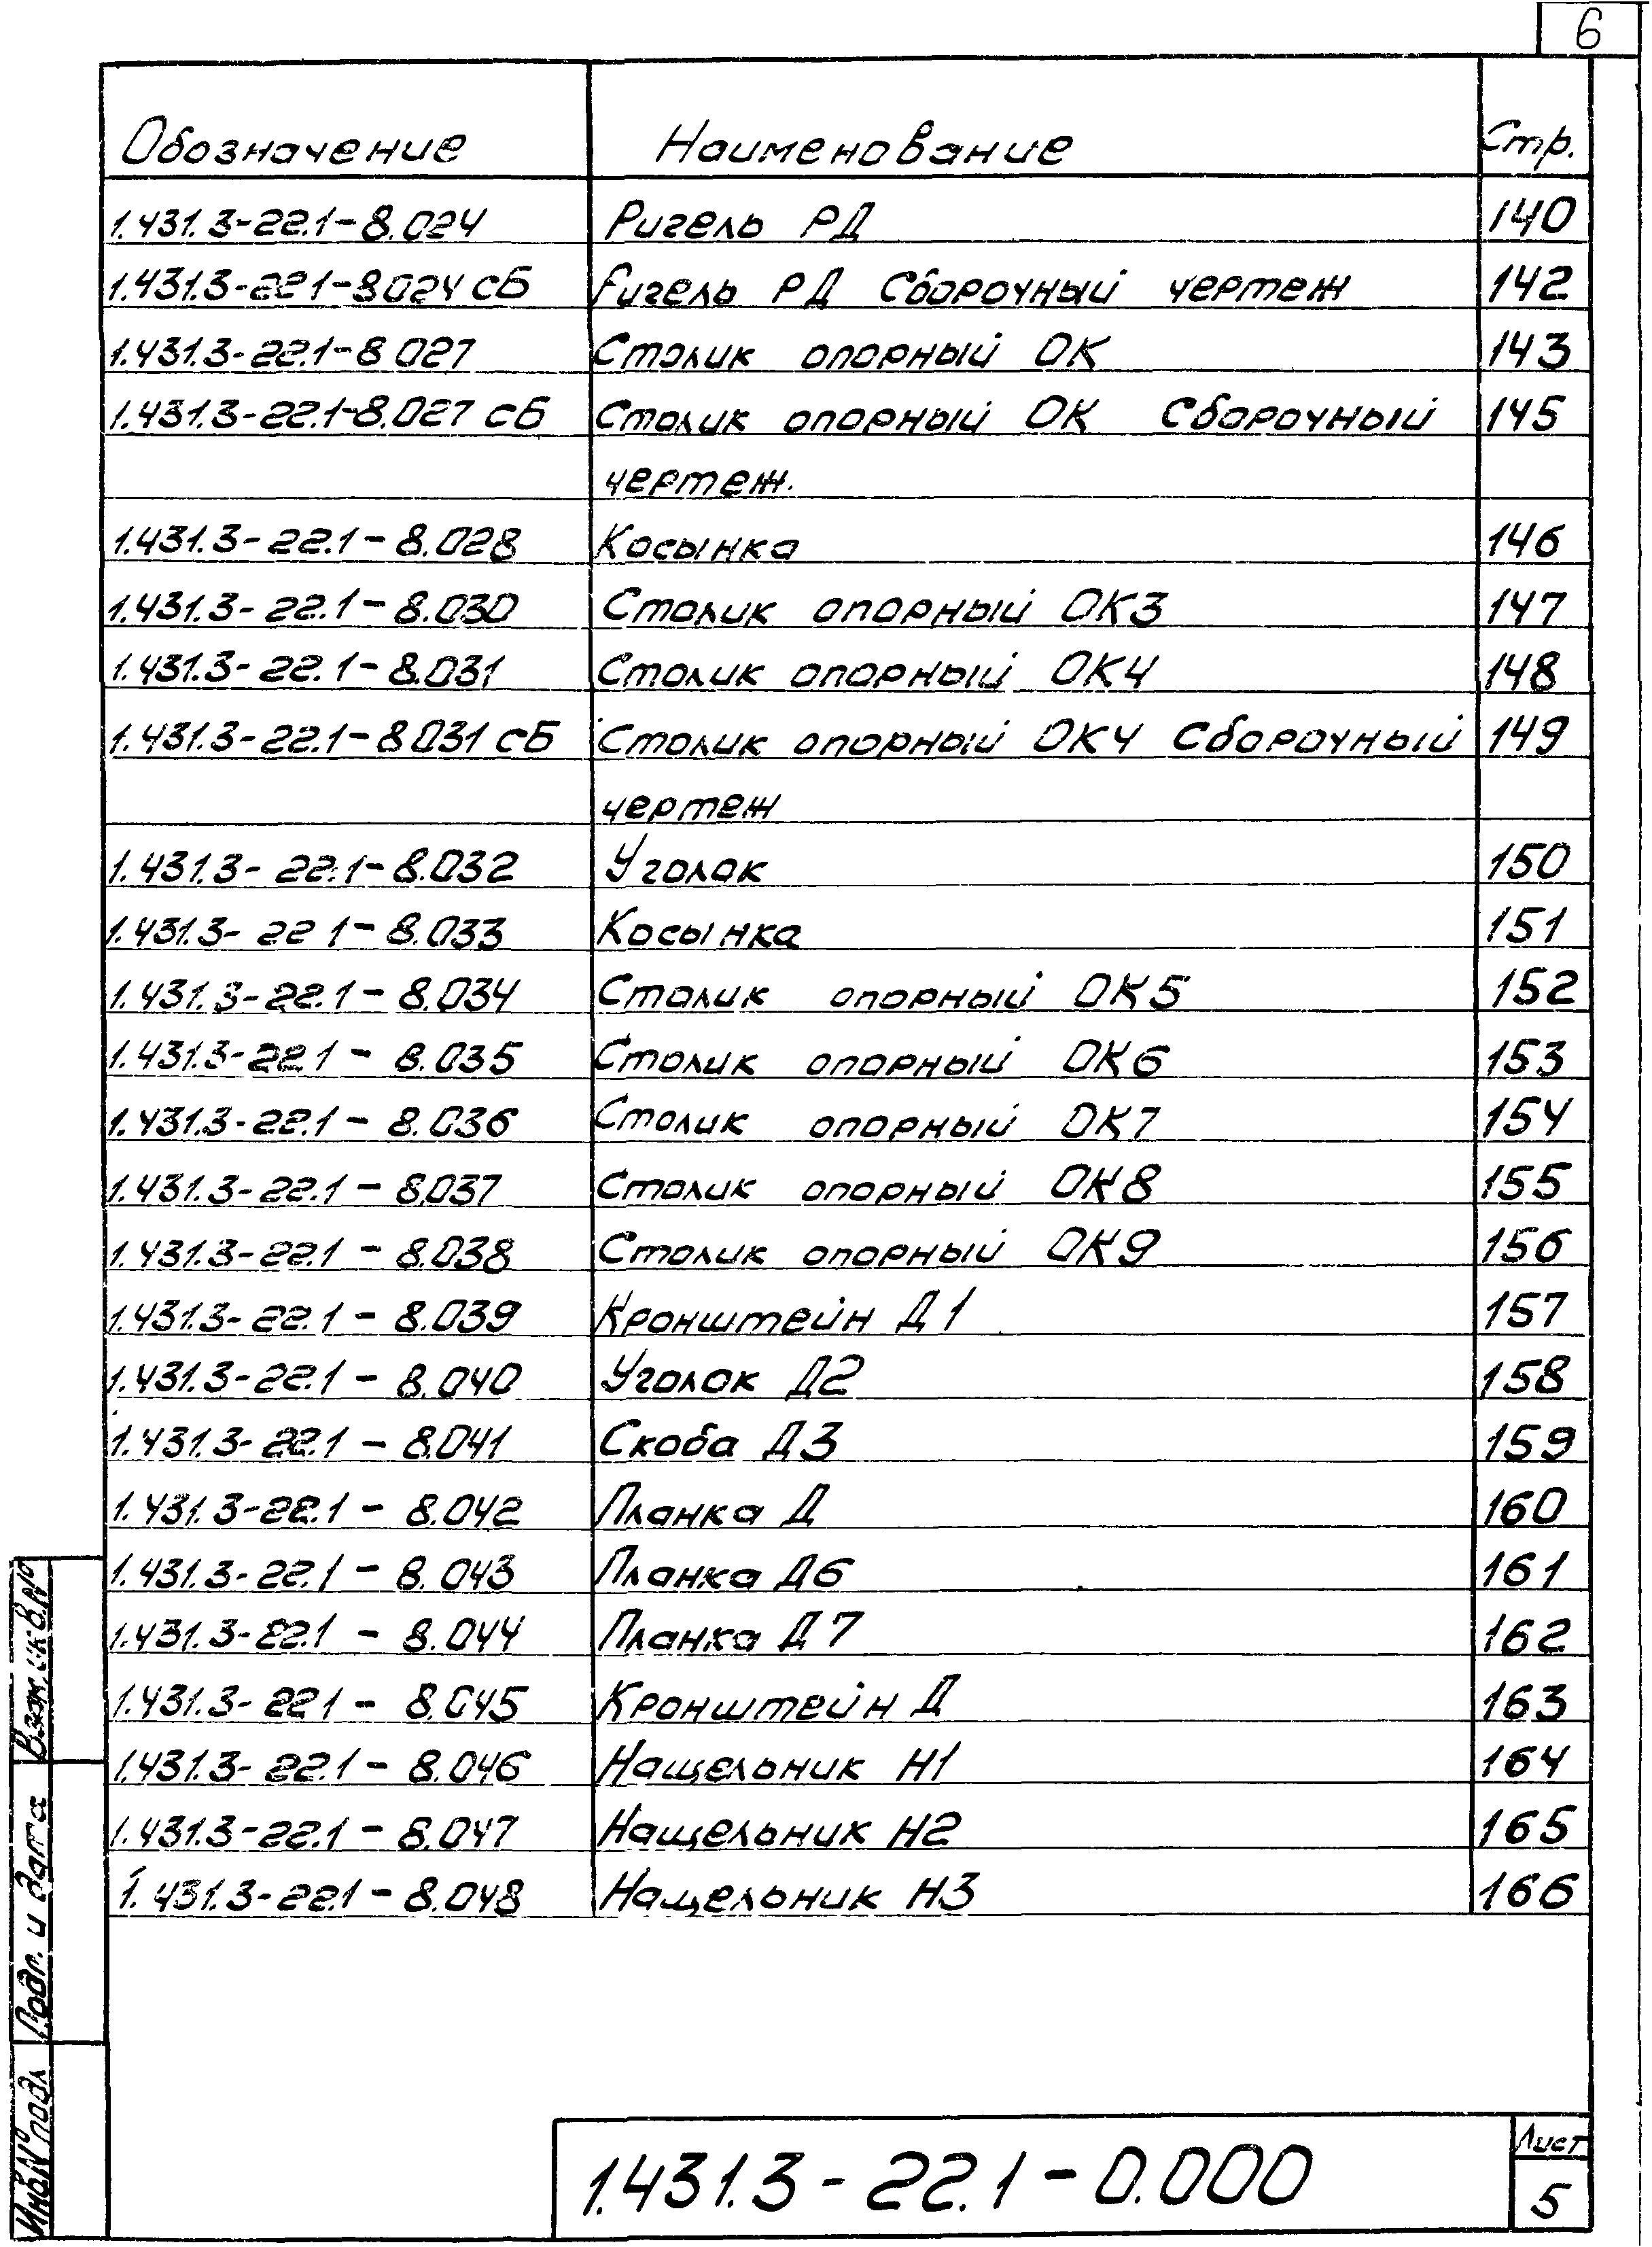 6
Обозначение Наименование Стр.
1.431.3-22.1-8.024 Ригель РД 140
1.431.3-22 1-8024 сб Ригель РД Сборочный чертеж 142
1.431.3-22.1-8 027 Столик опорный ОК 143
1.431.3-22.1-8.027 сб Столик опорный ОК Сборочный 145
чертеж.
1.431.3-22.1-8.028 Косынка 146
1.431.3-22.1-8.030 Столик опорный ОК3 147
1.431.3-22.1-8.031 Столик опорный ОК4 148
1.431.3-22.1-8031 сб Столик опорный ОК4 Сборочный 149
чертеж
1.431.3-22.1-8.032 Уголок 150
1.431.3-22 1-8.033 Косынка 151
1.431.3-22.1-8.034 Столик опорный ОК5 152
1.431.3-22.1-8.035 Столик опорный ОК6 153
1.431.3-22.1-8.036 Столик опорный ОК7 154
1.431.3-22.1-8.037 Столик опорный ОК8 155
1.431.3-22.1-8.038 Столик опорный ОК9 156
1.431.3-22.1-8.039 Кронштейн Д1 157
1.431.3-22.1-8.040 Уголок Д2 158
1.431.3-22.1-8.041 Скоба Д3 159
1.431.3-22.1-8.042 Планка Д 160
1.431.3-22.1-8.043 Планка Д6 161
1.431.3-22.1-8.044 Планка Д7 162
1.431.3-22.1-8.045 Кронштейн Д 163
1.431.3-22.1-8.046 Нащельник Н1 164
1.431.3-22.1-8.047 Нащельник Н2 165
1.431.3-22.1-8.048 Нащельник Н3 166
Взам.инв.№
Подп. и дата
Инв№подл
1.431.3-22.1-0.000
Лист
5